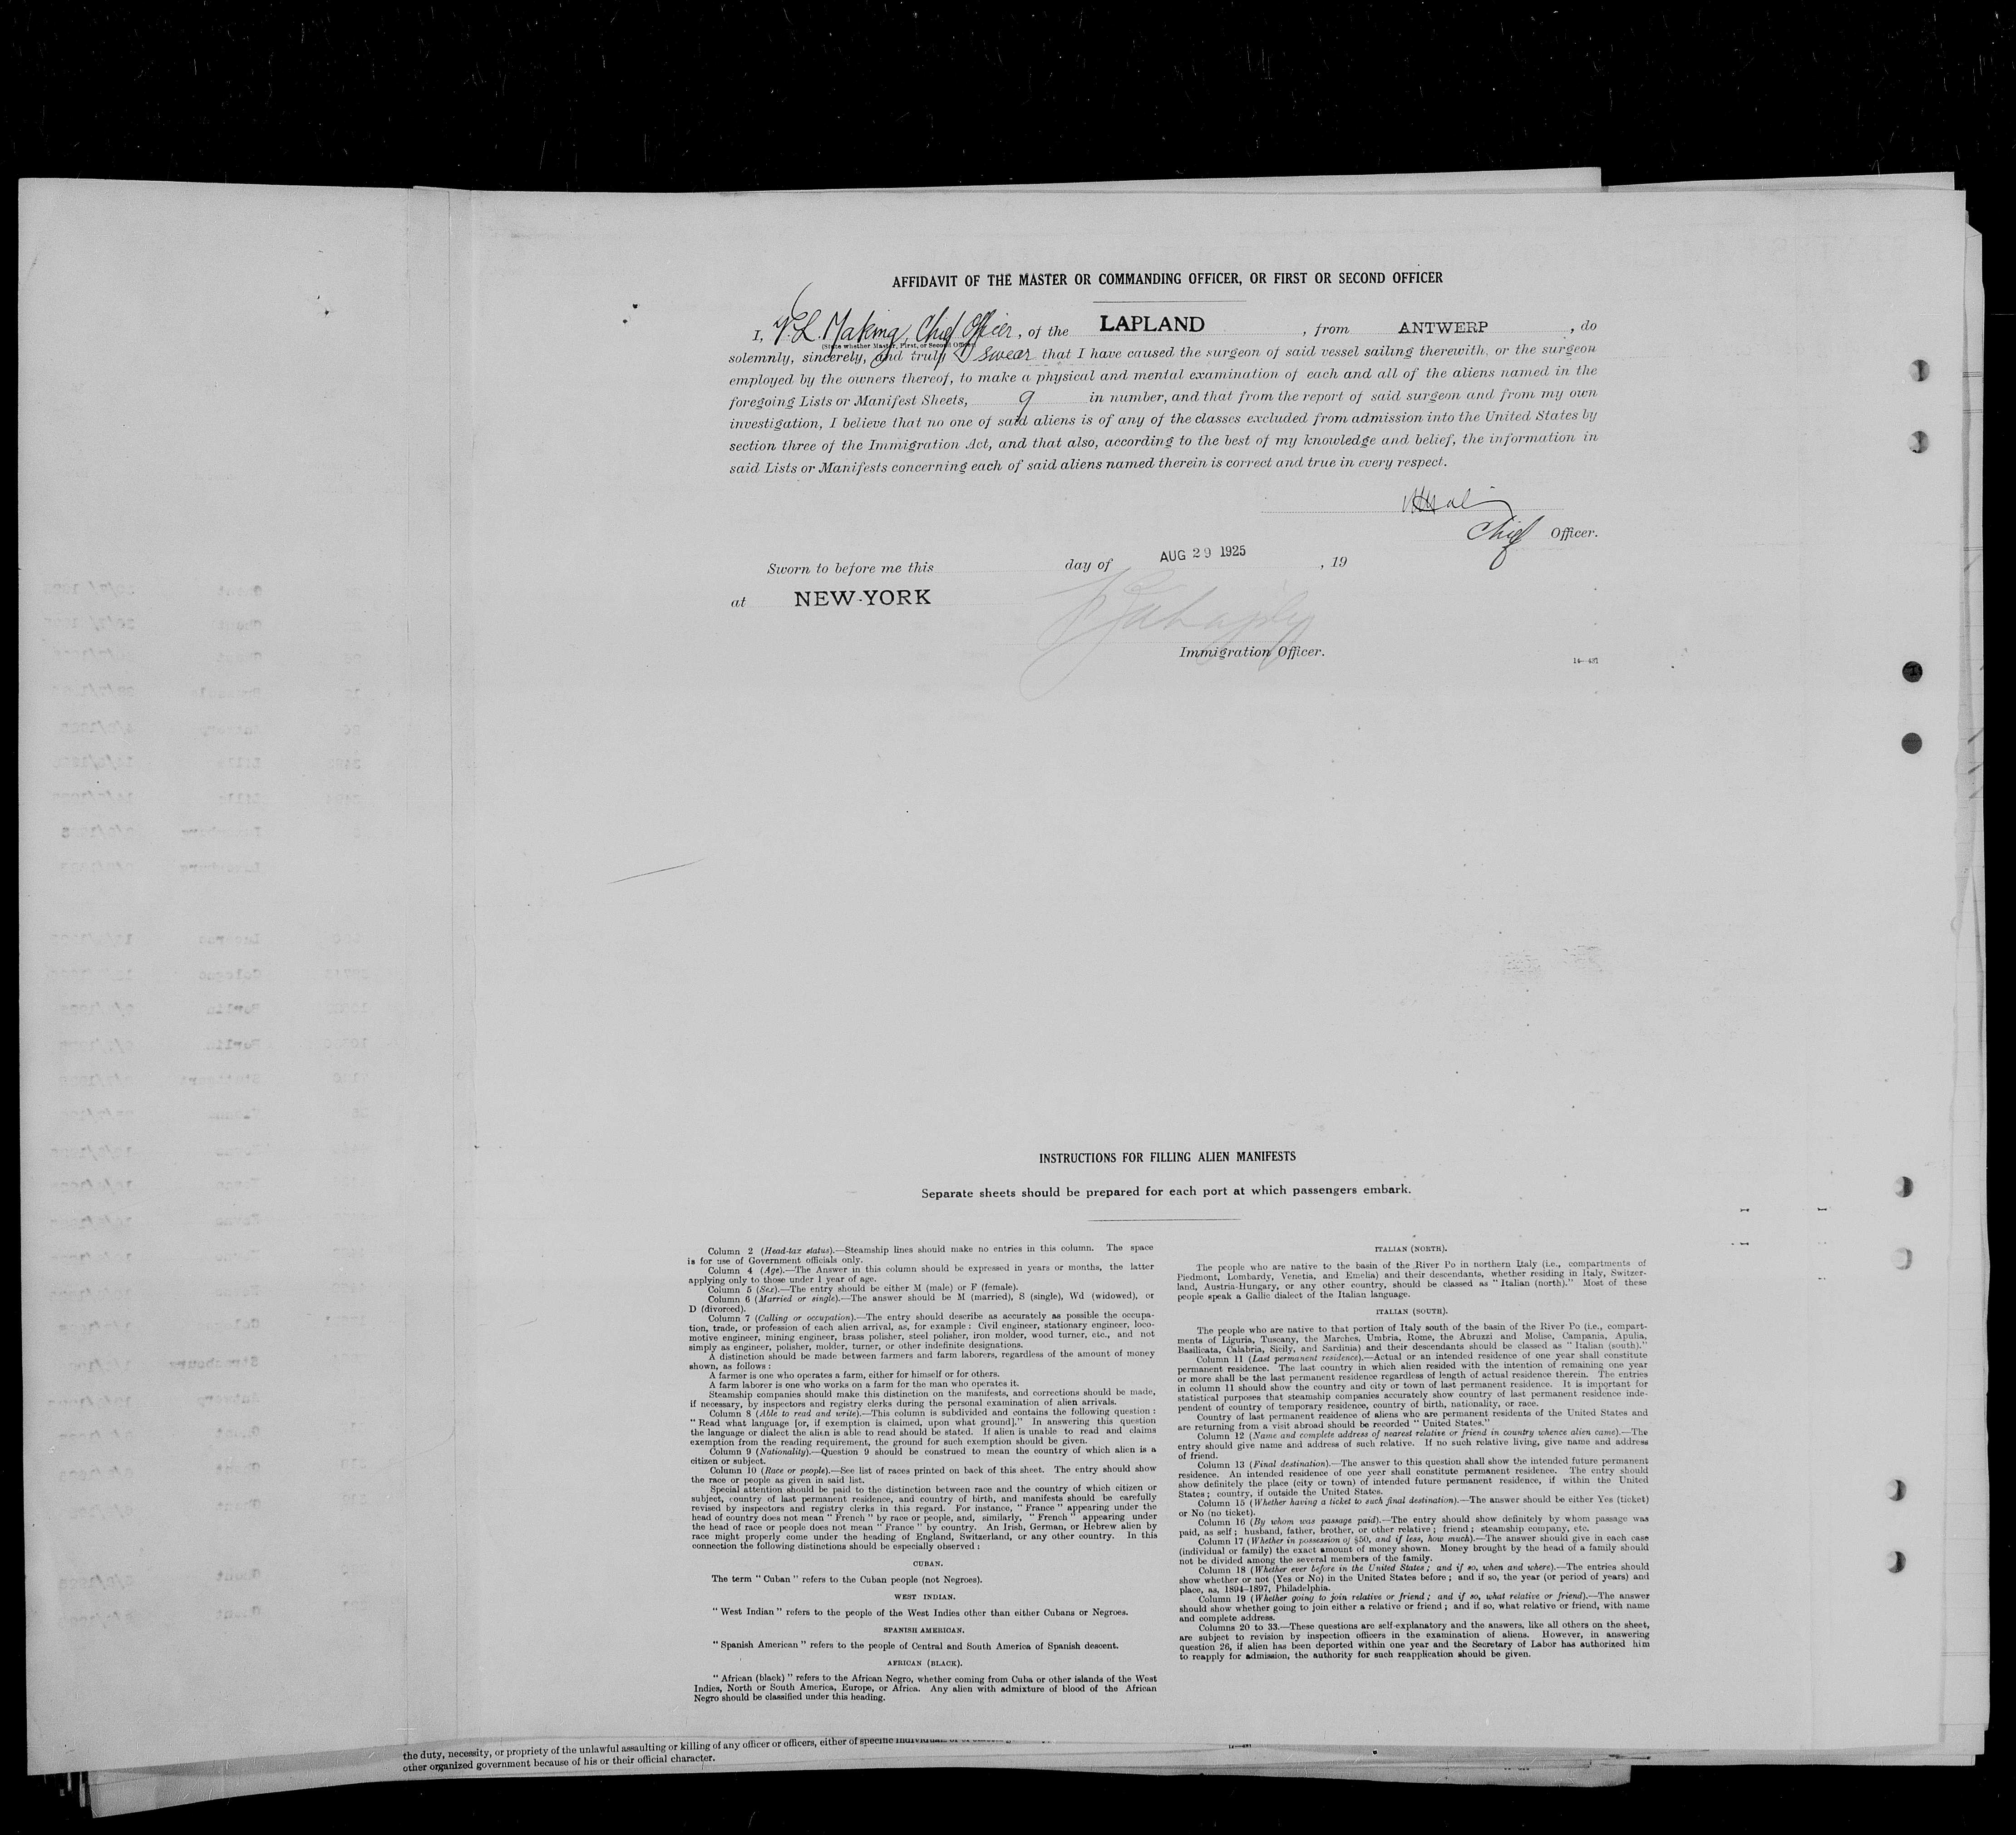 AFFIDAVIT OF THE MASTER OR COMMANDING OFFICER, OR FIRST OR SECOND OFFICER
I, Making, Chief Officer, of the LAPLAND, from ANTWERP, do
(State whether Master, First, or Second Officer)
solemnly, sincerely, and truly swear that I have caused the surgeon of said vessel sailing therewith, or the surgeon
employed by the owners thereof, to make a physical and mental examination of each and all of the aliens named in the
foregoing Lists or Manifest Sheets, 9 in number, and that from the report of said surgeon and from my own
investigation, I believe that no one of said aliens is of any of the classes excluded from admission into the United States by
section three of the Immigration Act, and that also, according to the best of my knowledge and belief, the information in
said Lists or Manifests concerning each of said aliens named therein is correct and true in every respect.
Chief Officer.
Sworn to before me this day of AUG 29 1925, 19
at NEW-YORK
Immigration Officer.
14—431
INSTRUCTIONS FOR FILLING ALIEN MANIFESTS
Separate sheets should be prepared for each port at which passengers embark.
Column 2 (Head-tax status).—Steamship lines should make no entries in this column. The space
is for use of Government officials only.
Column 4 (Age).—The Answer in this column should be expressed in years or months, the latter
applying only to those under 1 year of age.
Column 5 (Sex).—The entry should be either M (male) or F (female).
Column 6 (Married or single).—The answer should be M (married), S (single), Wd (widowed), or
D (divorced).
Column 7 (Calling or occupation).—The entry should describe as accurately as possible the occupa-
tion, trade, or profession of each alien arrival, as, for example: Civil engineer, stationary engineer, loco-
motive engineer, mining engineer, brass polisher, steel polisher, iron molder, wood turner, etc., and not
simply as engineer, polisher, molder, turner, or other indefinite designations.
A distinction should be made between farmers and farm laborers, regardless of the amount of money
shown, as follows:
A farmer is one who operates a farm, either for himself or for others.
A farm laborer is one who works on a farm for the man who operates it.
Steamship companies should make this distinction on the manifests, and corrections should be made,
if necessary, by inspectors and registry clerks during the personal examination of alien arrivals.
Column 8 (Able to read and write).—This column is subdivided and contains the following question:
"Read what language [or, if exemption is claimed, upon what ground]." In answering this question
the language or dialect the alien is able to read should be stated. If alien is unable to read and claims
exemption from the reading requirement, the ground for such exemption should be given.
Column 9 (Nationality).—Question 9 should be construed to mean the country of which alien is a
citizen or subject.
Column 10 (Race or people).—See list of races printed on back of this sheet. The entry should show
the race or people as given in said list.
Special attention should be paid to the distinction between race and the country of which citizen or
subject, country of last permanent residence, and country of birth, and manifests should be carefully
revised by inspectors and registry clerks in this regard. For instance, "France" appearing under the
head of country does not mean "French" by race or people, and, similarly, "French" appearing under
the head of race or people does not mean "France" by country. An Irish, German, or Hebrew alien by
race might properly come under the heading of England, Switzerland, or any other country. In this
connection the following distinctions should be especially observed:
CUBAN.
The term "Cuban" refers to the Cuban people (not Negroes).
WEST INDIAN.
"West Indian" refers to the people of the West Indies other than either Cubans or Negroes.
SPANISH AMERICAN.
"Spanish American" refers to the people of Central and South America of Spanish descent.
AFRICAN (BLACK).
"African (black)" refers to the African Negro, whether coming from Cuba or other islands of the West
Indies, North or South America, Europe, or Africa. Any alien with admixture of blood of the African
Negro should be classified under this heading.
ITALIAN (NORTH).
The people who are native to the basin of the River Po in northern Italy (i.e., compartments of
Piedmont, Lombardy, Venetia, and Emelia) and their descendants, whether residing in Italy, Switzer-
land, Austria-Hungary, or any other country, should be classed as "Italian (north)." Most of these
people speak a Gallic dialect of the Italian language.
ITALIAN (SOUTH).
The people who are native to that portion of Italy south of the basin of the River Po (i.e., compart-
ments of Liguria, Tuscany, the Marches, Umbria, Rome, the Abruzzi and Molise, Campania, Apulia,
Basilicata, Calabria, Sicily, and Sardinia) and their descendants should be classed as "Italian (south)."
Column 11 (Last permanent residence).—Actual or an intended residence of one year shall constitute
permanent residence. The last country in which alien resided with the intention of remaining one year
or more shall be the last permanent residence regardless of length of actual residence therein. The entries
in column 11 should show the country and city or town of last permanent residence. It is important for
statistical purposes that steamship companies accurately show country of last permanent residence inde-
pendent of country of temporary residence, country of birth, nationality, or race.
Country of last permanent residence of aliens who are permanent residents of the United States and
are returning from a visit abroad should be recorded "United States."
Column 12 (Name and complete address of nearest relative or friend in country whence alien came).—The
entry should give name and address of such relative. If no such relative living, give name and address
of friend.
Column 13 (Final destination).—The answer to this question shall show the intended future permanent
residence. An intended residence of one year shall constitute permanent residence. The entry should
show definitely the place (city or town) of intended future permanent residence, if within the United
States; country, if outside the United States.
Column 15 (Whether having a ticket to such final destination).—The answer should be either Yes (ticket)
or No (no ticket).
Column 16 (By whom was passage paid).—The entry should show definitely by whom passage was
paid, as self; husband, father, brother, or other relative; friend; steamship company, etc.
Column 17 (Whether in possession of $50, and if less, how much).—The answer should give in each case
(individual or family) the exact amount of money shown. Money brought by the head of a family should
not be divided among the several members of the family.
Column 18 (Whether ever before in the United States; and if so, when and where).—The entries should
show whether or not (Yes or No) in the United States before; and if so, the year (or period of years) and
place, as, 1894–1897, Philadelphia.
Column 19 (Whether going to join relative or friend; and if so, what relative or friend).—The answer
should show whether going to join either a relative or friend; and if so, what relative or friend, with name
and complete address.
Columns 20 to 33.—These questions are self-explanatory and the answers, like all others on the sheet,
are subject to revision by inspection officers in the examination of aliens. However, in answering
question 26, if alien has been deported within one year and the Secretary of Labor has authorized him
to reapply for admission, the authority for such reapplication should be given.
the duty, necessity, or propriety of the unlawful assaulting or killing of any officer or officers, either of specific
other organized government because of his or their official character.